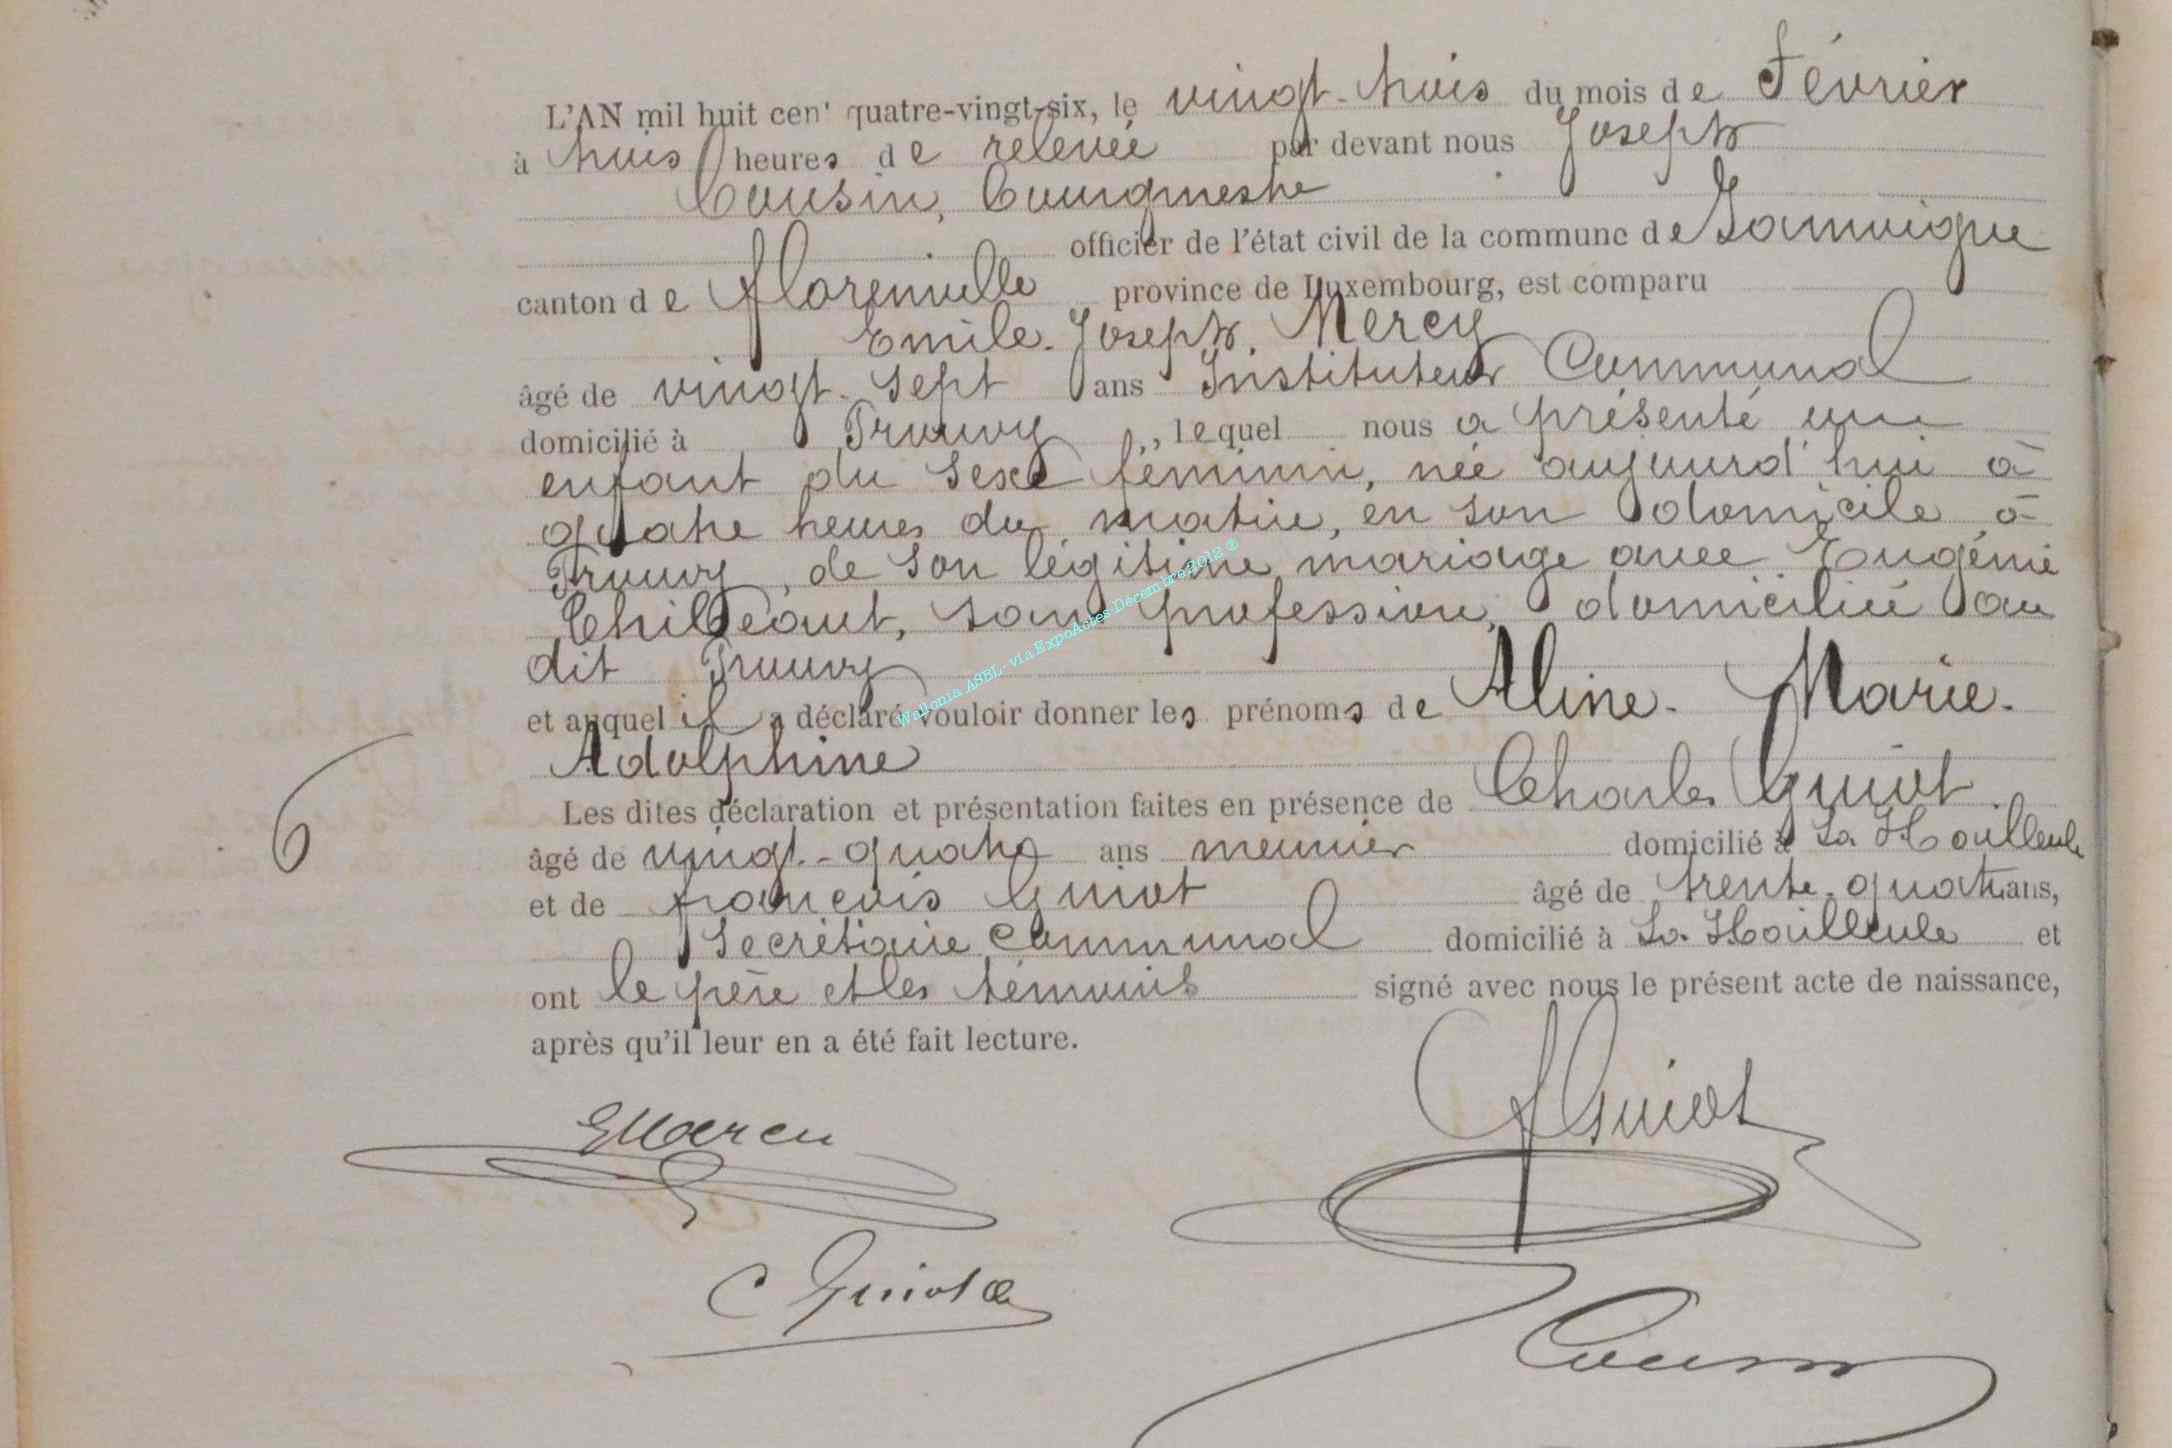 L'AN mil huit cen' quatre-vingt-six, le vingt-trois du mois de Février
à trois heures de relevée par devant nous Joseph
Cousin, Bourgmestre
officier de l'état civil de la commune de Jamoigne
canton de Florenville province de Luxembourg, est comparu
Emile-Joseph. Mercy
âgé de vingt-sept ans Instituteur Communal
domicilié à Prouvy, lequel nous a présenté un
enfant du sexe féminin, née aujourd'hui à
quatre heures du matin, en son domicile à
Prouvy, de son légitime mariage avec Eugénie
Thibeaut, sans profession, domiciliée au
dit Prouvy
et auquel il a déclaré vouloir donner les prénoms de Aline-Marie-
Adolphine
Les dites déclaration et présentation faites en présence de Charles Guiot
âgé de vingt-quatre ans meunier domicilié à La Hailleule
et de François Guiot âgé de trente-quatre ans,
Secrétaire Communal domicilié à La Hailleule et
ont le père et les témoins signé avec nous le présent acte de naissance,
après qu'il leur en a été fait lecture.
6
EMercy
FGuiot
C Guiot
Cousin
Wallonia ASBL - via ExpoActes-Décembre 2012 ®